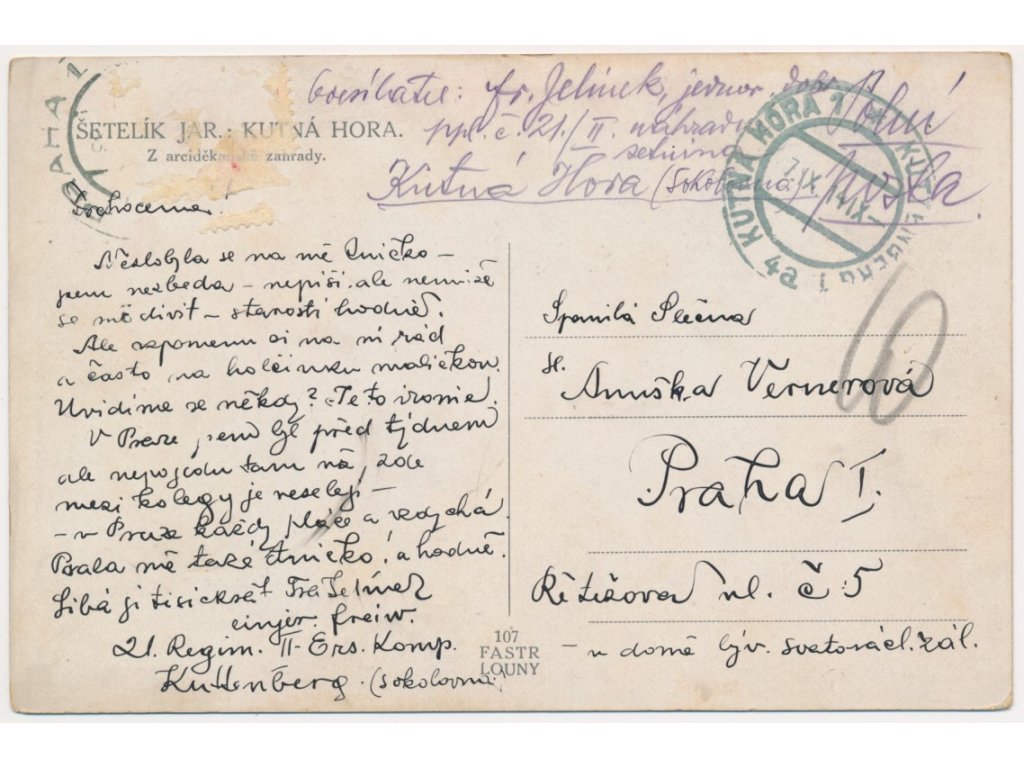 PRAHA 1
ŠETELÍK JAR.: KUTNÁ HORA.
Z arciděkanské zahrady.
fr. Jelínek, jednor. dobr.
ppl. č. 21./II. náhradní
setnina
Kutná Hora (Sokolovna)
Polní
pošta
KUTNÁ HORA 1
KUTTENBERG 1
4a
7.IX
Drahocenná!
Nezlobila se na mě Aničko –
jsem nezbeda – nepíši, ale nemůže
se mě divit – starostí hodně.
Ale vzpomenu si na ni rád
a často na holčinku maličkou.
Uvidíme se někdy? Je to ironie.
V Praze jsem byl před týdnem
ale nepojedu tam už, zde
mezi kolegy je veseleji –
– v Praze každý pláče a vzdychá.
Psala mě také Aničko! a hodně.
Líbá ji tisíckrát Fra Jelínek
einjär. freiw.
21. Regim. II. Ers. Komp.
Kuttenberg. (Sokolovna)
107
FASTR
LOUNY
Spanilá Slečna
sl.
Anuška Vernerová
Praha I.
Řetězová ul. č. 5
– v domě býv. svatovácl. zál.